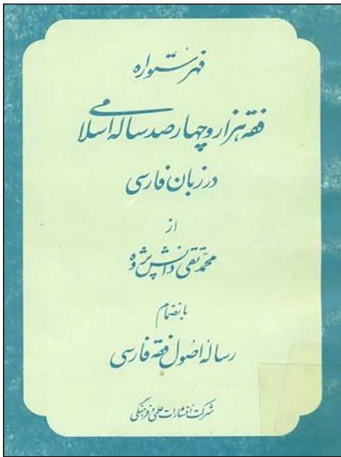 فهرستواره
فقه هزار و چهار صد ساله اسلامی
در زبان فارسی
از
محمد تقی دانش پژوه
بانضمام
رساله اصول فقه فارسی
شرکت انتشارات علمی و فرهنگی